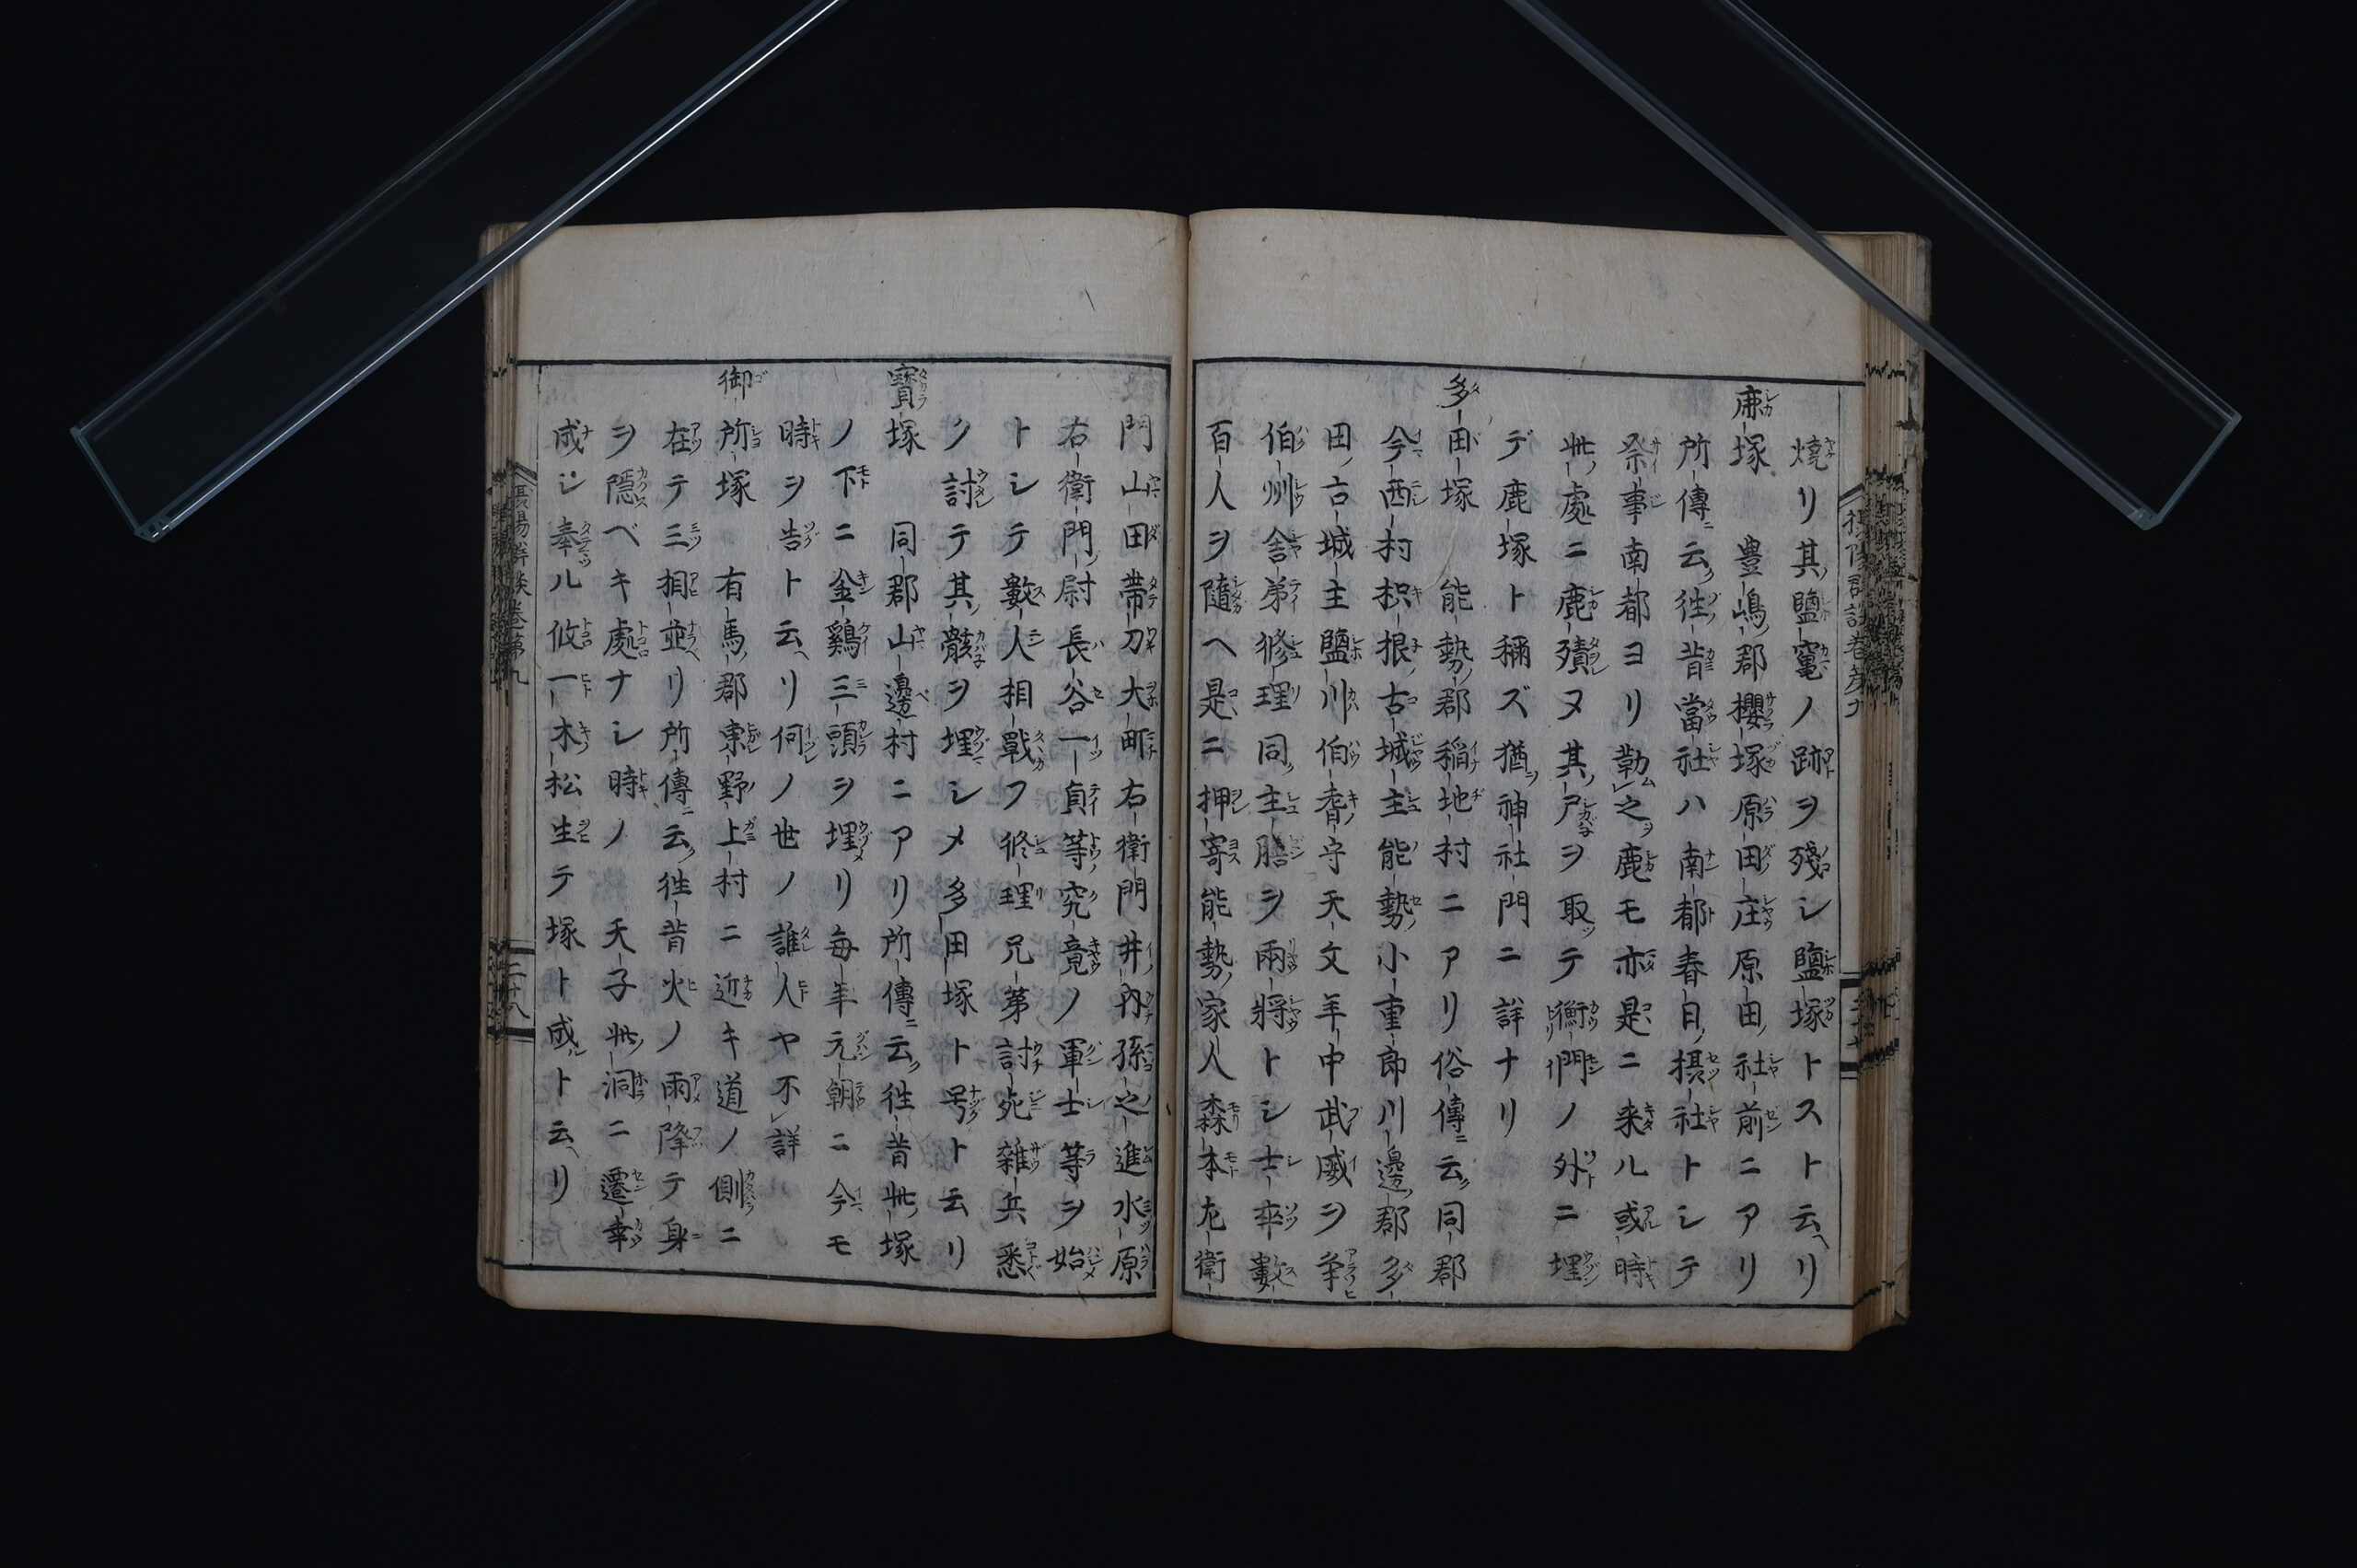 燒リ其鹽竃ノ跡ヲ殘シ鹽塚トスト云ヘリ
鹿塚 豊嶋郡櫻塚原田庄原田社前ニアリ
所傳云往昔當社ハ南都春日攝社トシテ
祭事南都ヨリ勤之鹿モ亦是ニ来ル或時
此處ニ鹿殰ヌ其尸ヲ取テ衡門ノ外ニ埋
デ鹿塚ト稱ズ猶神社門ニ詳ナリ
多田塚 能勢郡稲地村ニアリ俗傳云同郡
今西村枳根古城主能勢小重郎川邊郡多
田古城主鹽川伯耆守天文年中武威ヲ争
伯州舎弟修理同主膳ヲ兩將トシ士卒數
百人ヲ隨ヘ是ニ押寄能勢家人森本左衛
門山田帯刀大町右衛門井内孫之進水原
右衛門尉長谷一貞等究竟ノ軍士等ヲ始
トシテ數人相戰フ修理兄弟討死雑兵悉
ク討テ其骸ヲ埋シメ多田塚ト号ト云リ
寳塚 同郡山邊村ニアリ所傳云往昔此塚
ノ下ニ金鷄三頭ヲ埋メリ毎年元朝ニ今モ
時ヲ告ト云ヘリ何ノ世ノ誰人ヤ不詳
御所塚 有馬郡東野上村ニ近キ道ノ側ニ
在テ三相並リ所傳云往昔火ノ雨降テ身
ヲ隠ベキ處ナシ時ノ 天子此洞ニ遷幸
成シ奉ル攸一木松生テ塚ト成ト云ヘリ